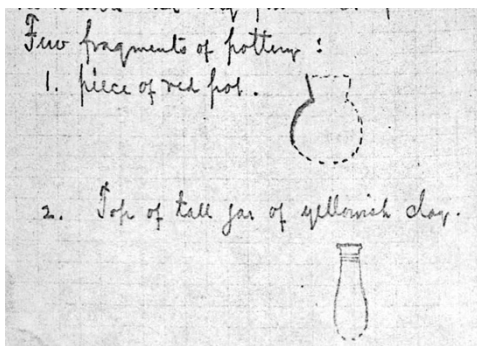 Few fragments of pottery :
1. piece of red pot.
2. Top of tall jar of yellowish clay.